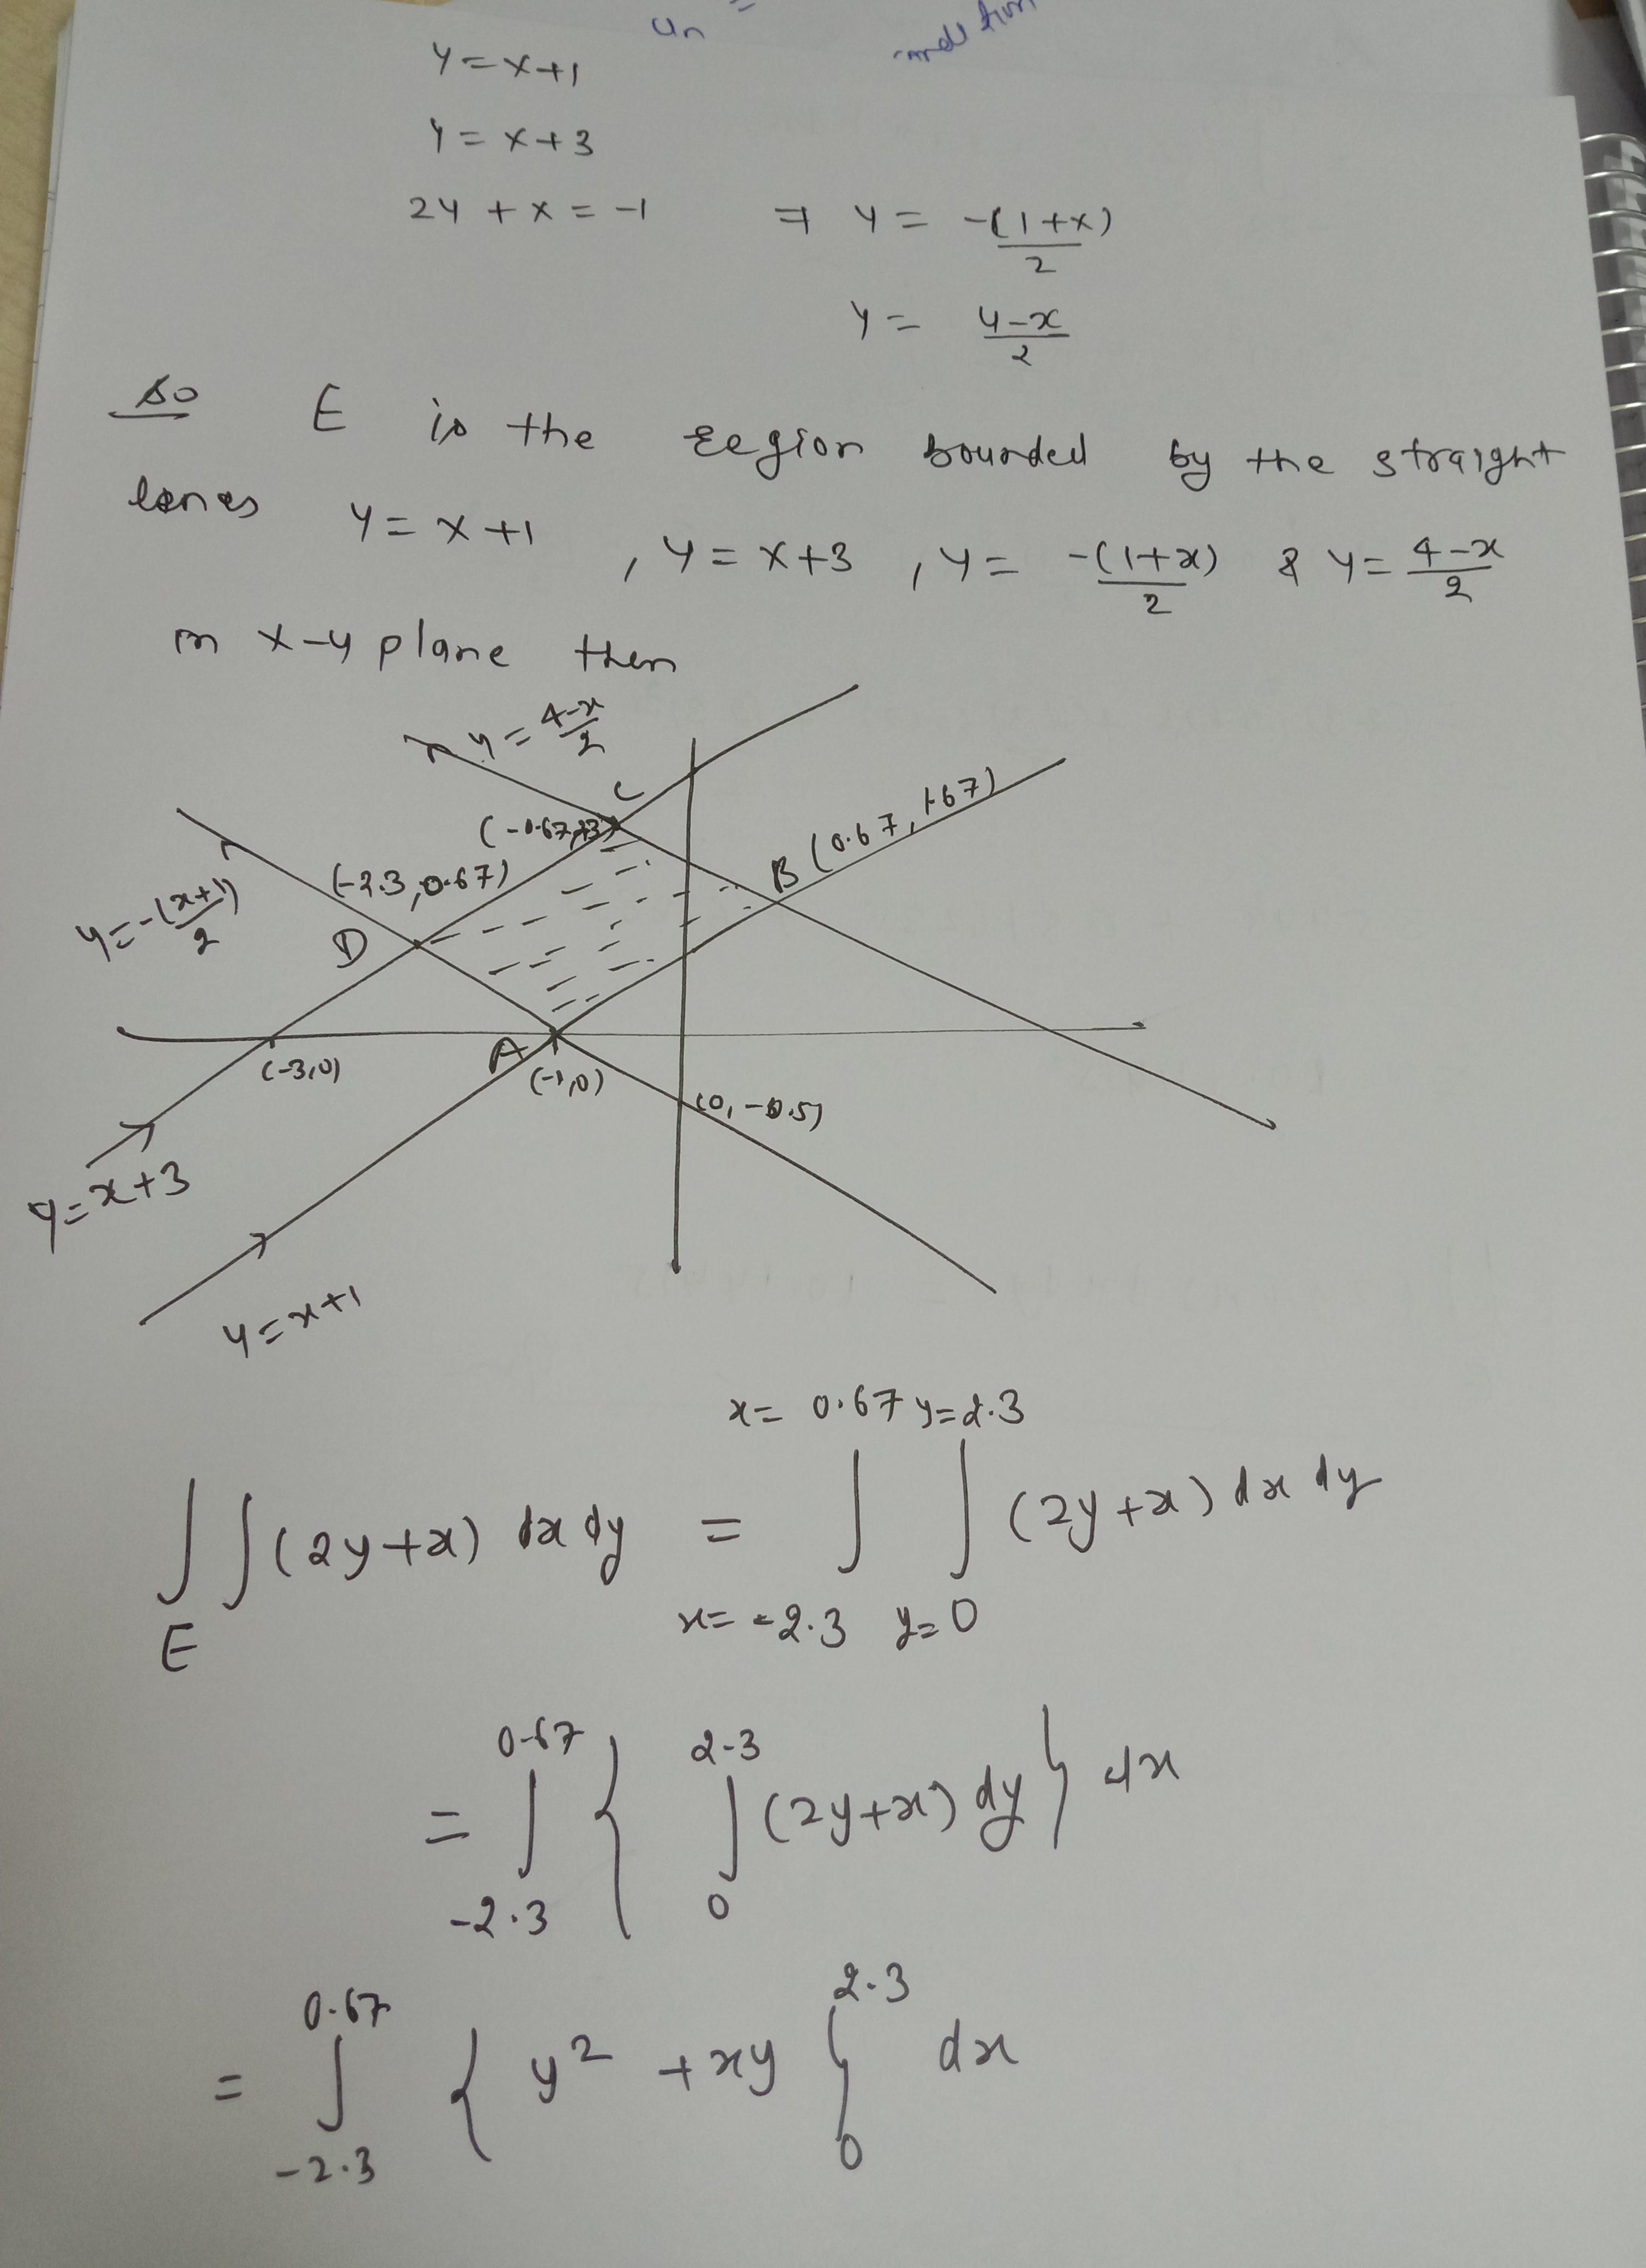 Un =
y = x+1
y = x+3
2y + x = -1 ⇒ y = -(1+x)/2
y = (4-x)/2
So E is the region bounded by the straight
lines y = x+1 , y = x+3 , y = -(1+x)/2 & y = (4-x)/2
in x-y plane then
y = (4-x)/2
C
B (0.67, 1.67)
(-2.3, 0.67)
y = -(x+1)/2
D
(-3,0)
A
(-1,0)
(0, -0.5)
y = x+3
y = x+1
∫∫_E (2y+x) dx dy = ∫_{x=-2.3}^{x=0.67} ∫_{y=0}^{y=2.3} (2y+x) dx dy
= ∫_{-2.3}^{0.67} { ∫_0^{2.3} (2y+x) dy } dx
= ∫_{-2.3}^{0.67} { y² + xy }_0^{2.3} dx